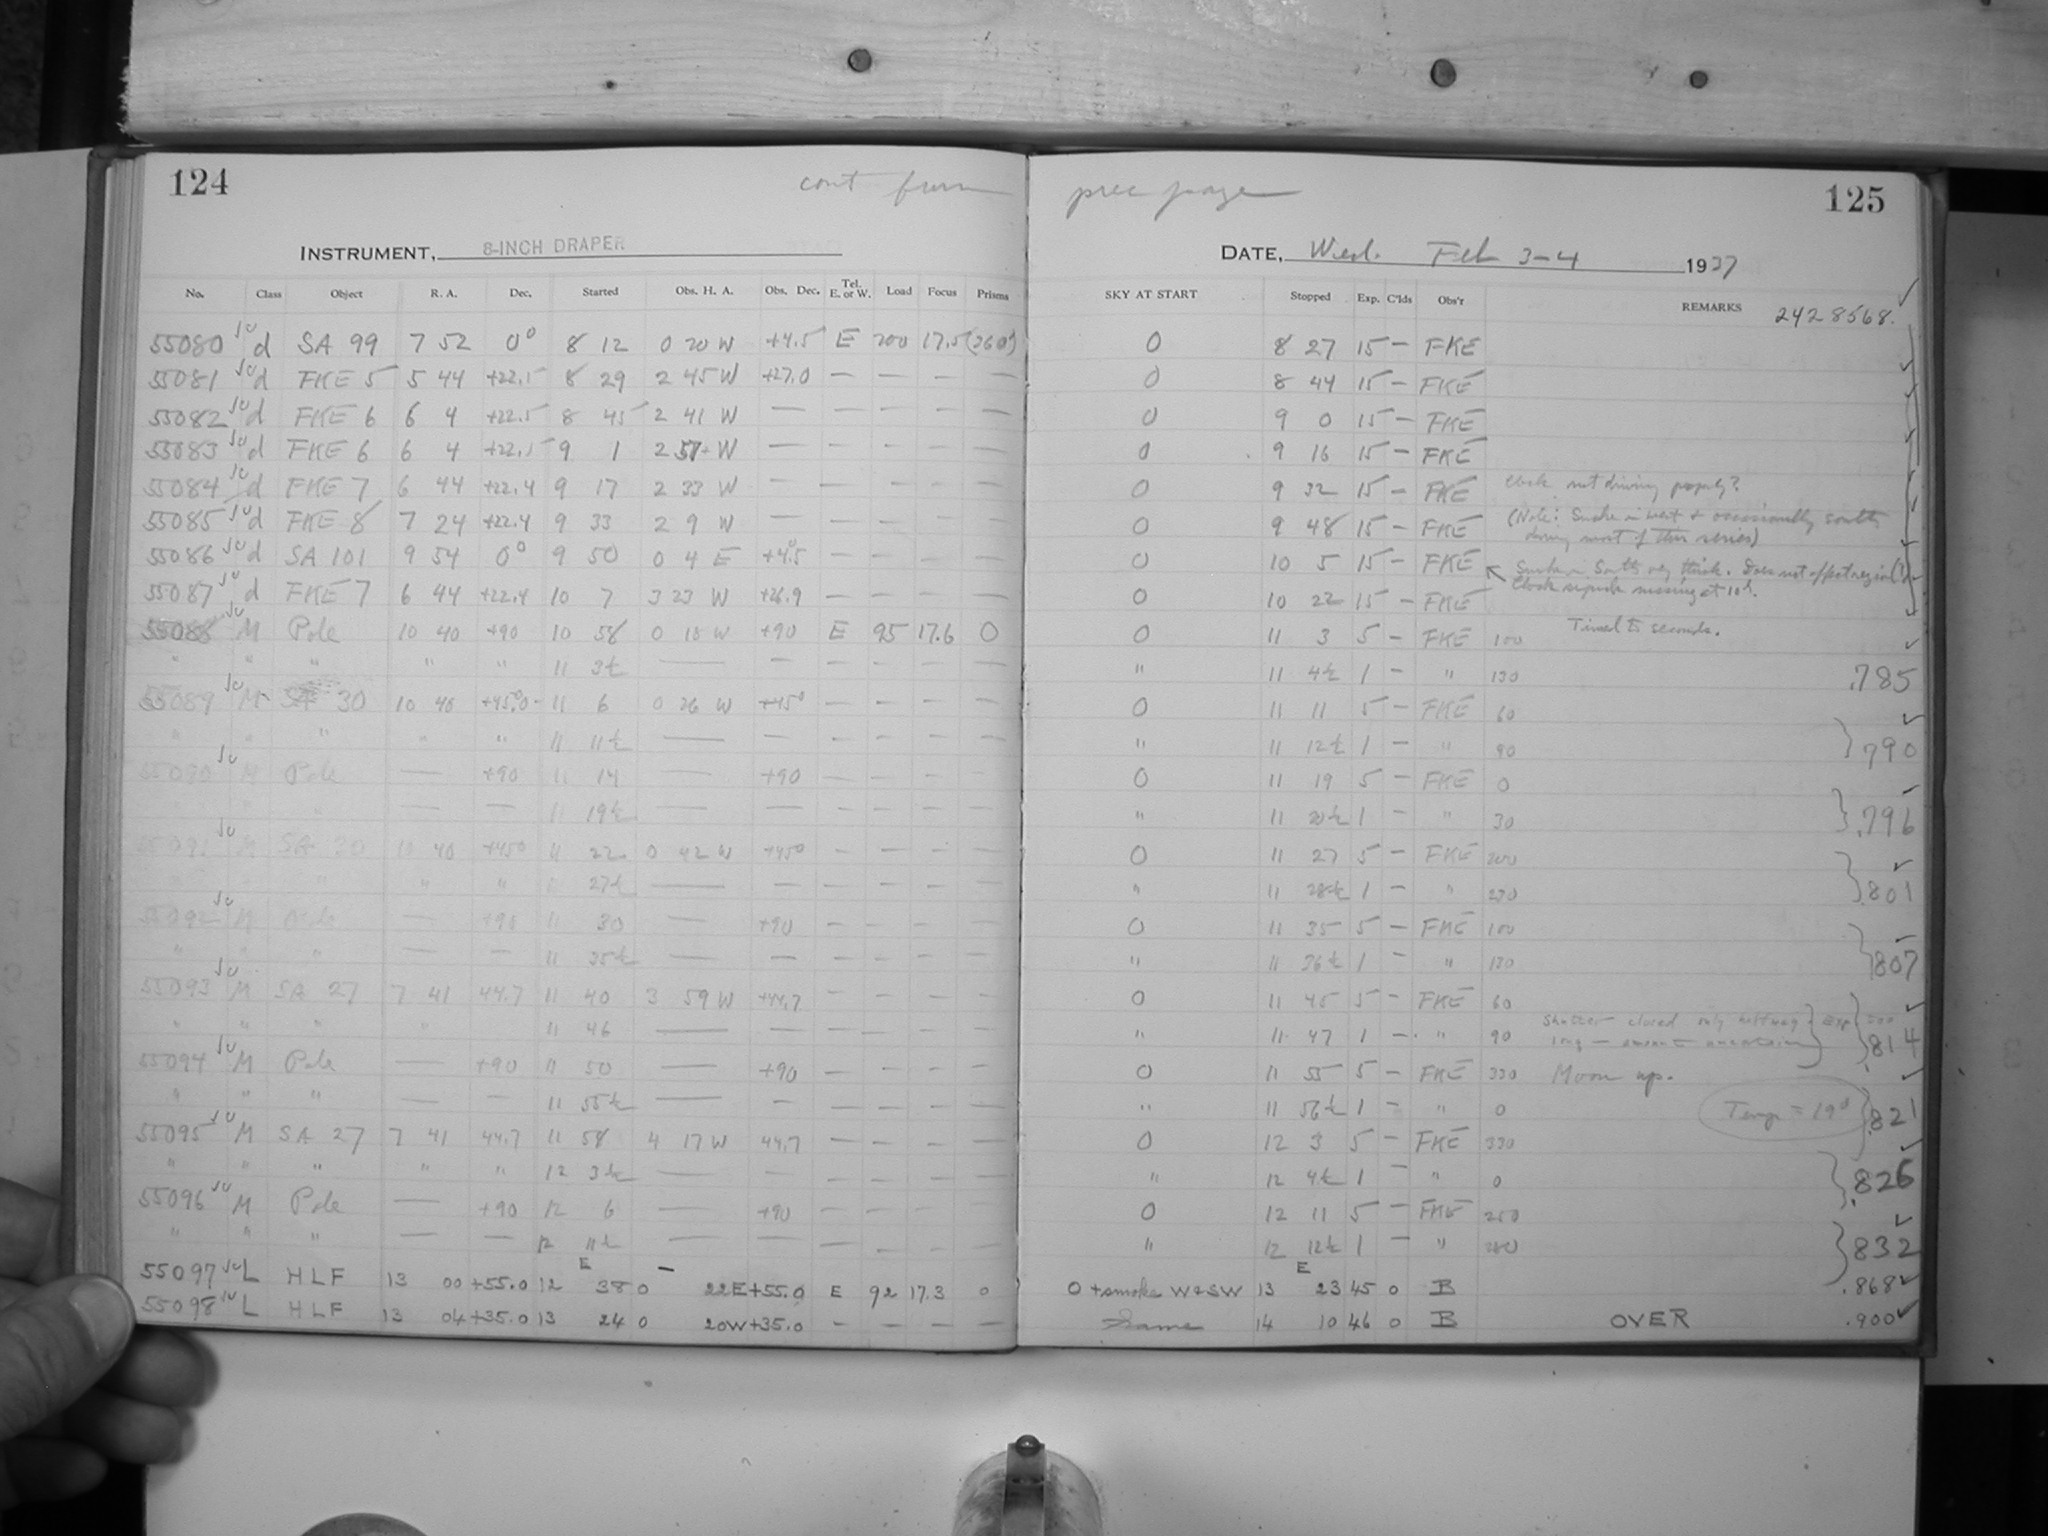 124 cont from prec page 125
INSTRUMENT, 8-INCH DRAPER DATE, Wed. Feb 3-4 1937
No. Class Object R. A. Dec. Started Obs. H. A. Obs. Dec. Tel. E. or W. Load Focus Prisms SKY AT START Stopped Exp. C'lds Obs'r REMARKS 2428568.
55080 d SA 99 7 52 0° 8 12 0 20 W +4.5 E 200 17.5 (360) 0 8 27 15 — FKE
55081 d FKE 5 5 44 +22.5 8 29 2 45 W +27.0 — — — — 0 8 44 15 — FKE
55082 d FKE 6 6 4 +22.5 8 45 2 41 W — — — — — 0 9 0 15 — FKE
55083 d FKE 6 6 4 +22.5 9 1 2 57 W — — — — — 0 9 16 15 — FKE
55084 d FKE 7 6 44 +22.4 9 17 2 33 W — — — — — 0 9 32 15 — FKE Clock not driving properly?
55085 d FKE 8 7 24 +22.4 9 33 2 9 W — — — — — 0 9 48 15 — FKE (Note: Smoke in west + occasionally south
during most of this series)
55086 d SA 101 9 54 0° 9 50 0 4 E +4.5 — — — — 0 10 5 15 — FKE Smoke in South very thick. Does not affect region(?)
55087 d FKE 7 6 44 +22.4 10 7 3 23 W +26.9 — — — — 0 10 22 15 — FKE Clock missing at 10h.
55088 M Pole 10 40 +90 10 58 0 18 W +90 E 95 17.6 0 0 11 3 5 — FKE 100 Timed to seconds.
" " " " " 11 3½ — — — — — — " 11 4½ 1 — " 130 .785
55089 M SA 30 10 40 +45.0 11 6 0 26 W +45° — — — — 0 11 11 5 — FKE 60
" " " " " 11 11½ — — — — — — " 11 12½ 1 — " 90 .790
55090 M Pole — +90 11 14 — +90 — — — — 0 11 19 5 — FKE 0
" " " — — 11 19½ — — — — — — " 11 20½ 1 — " 30 .796
55091 M SA 30 10 40 +45° 11 22 0 42 W +45° — — — — 0 11 27 5 — FKE 200
" " " " " 11 27½ — — — — — — " 11 28½ 1 — " 230 .801
55092 M Pole — +90 11 30 — +90 — — — — 0 11 35 5 — FKE 100
" " " — — 11 35½ — — — — — — " 11 36½ 1 — " 130 .807
55093 M SA 27 7 41 44.7 11 40 3 59 W +44.7 — — — — 0 11 45 5 — FKE 60
" " " " 11 46 — — — — — — " 11 47 1 — " 90 Shutter closed only halfway. Exp too
long — amount uncertain .814
55094 M Pole — +90 11 50 — +90 — — — — 0 11 55 5 — FKE 330 Moon up.
" " " — — 11 55½ — — — — — — " 11 56½ 1 — " 0 Temp = 19° .821
55095 M SA 27 7 41 44.7 11 58 4 17 W 44.7 — — — — 0 12 3 5 — FKE 330
" " " " " 12 3½ — — — — — — " 12 4½ 1 — " 0 .826
55096 M Pole — +90 12 6 — +90 — — — — 0 12 11 5 — FKE 250
" " " — — 12 11½ — — — — — — " 12 12½ 1 — " 280 .832
55097 L HLF 13 00 +55.0 12 E 38 0 22E +55.0 E 92 17.3 0 0 + smoke W & SW 13 E 23 45 0 B .868
55098 L HLF 13 04 +35.0 13 24 0 20W +35.0 — — — — Same 14 10 46 0 B OVER .900